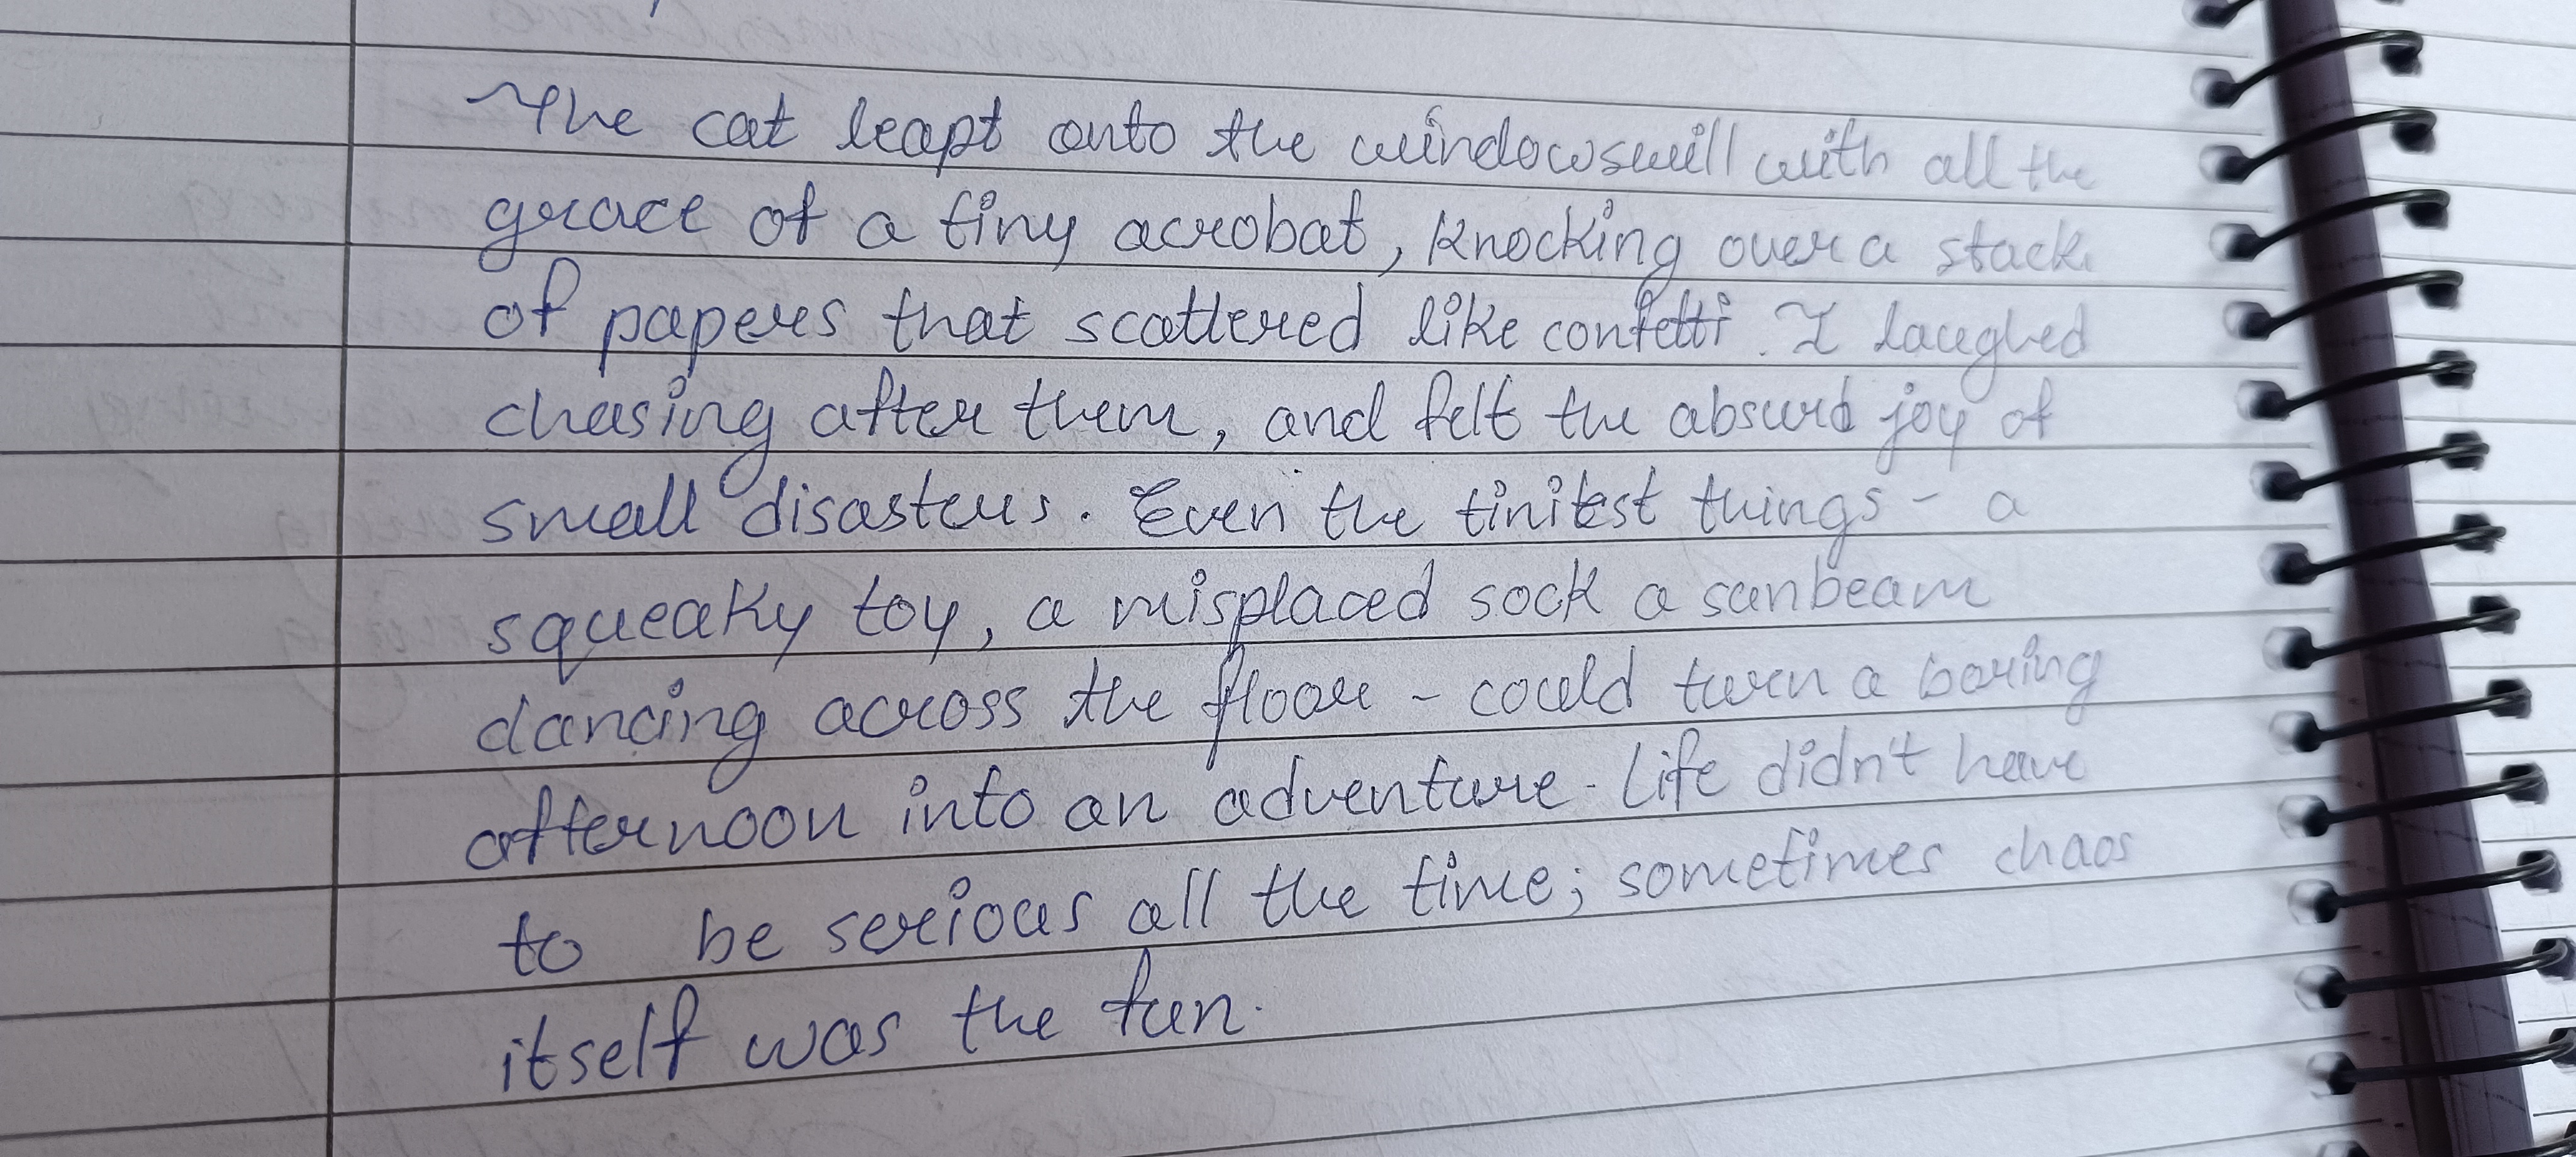 The cat leapt onto the windowswill with all the
grace of a tiny acrobat, knocking over a stack
of papers that scattered like confetti. I laughed
chasing after them, and felt the absurd joy of
small disasters. Even the tinitest things - a
squeaky toy, a misplaced sock a sunbeam
dancing across the floor - could turn a boring
afternoon into an adventure. Life didn't have
to be serious all the time; sometimes chaos
itself was the fun.